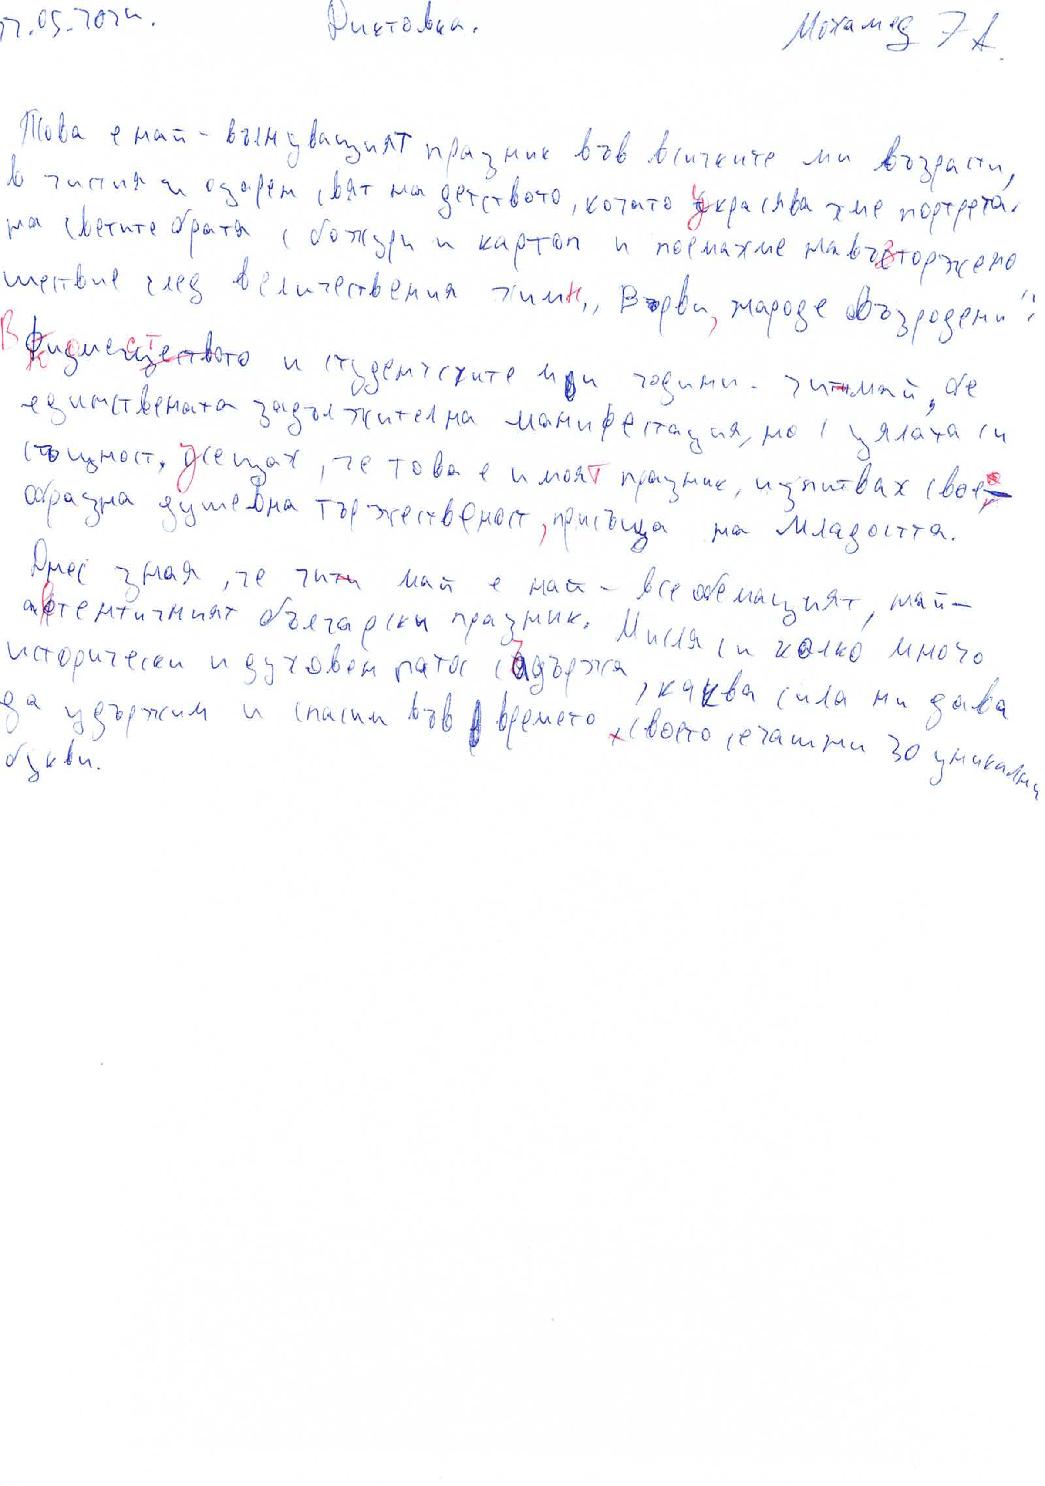 Диктовка.
Мохамед 7 А
Това е най - вълнуващият празник във всичките ми възрасти,
в чистия и озарен свят на детството, когато украсявахме портрета
на светите братя с божури и картон и поемахме на възторжено
шествие след величествения химн „Върви, народе възродени“.
и студентските ми години. 24 май, бе
единствената задължителна манифестация, но с цялата си
същност, усещах, че това е и моят празник, изпитвах свое
образна душевна тържественост, присъща на младостта.
Днес зная, че 24 май е най - всеобемащият, най-
автентичният български празник. Мисля си колко много
исторически и духовен патос съдържа, каква сила ни дава
да удържим и спасим във времето своето сечатни 30 уникални
букви.